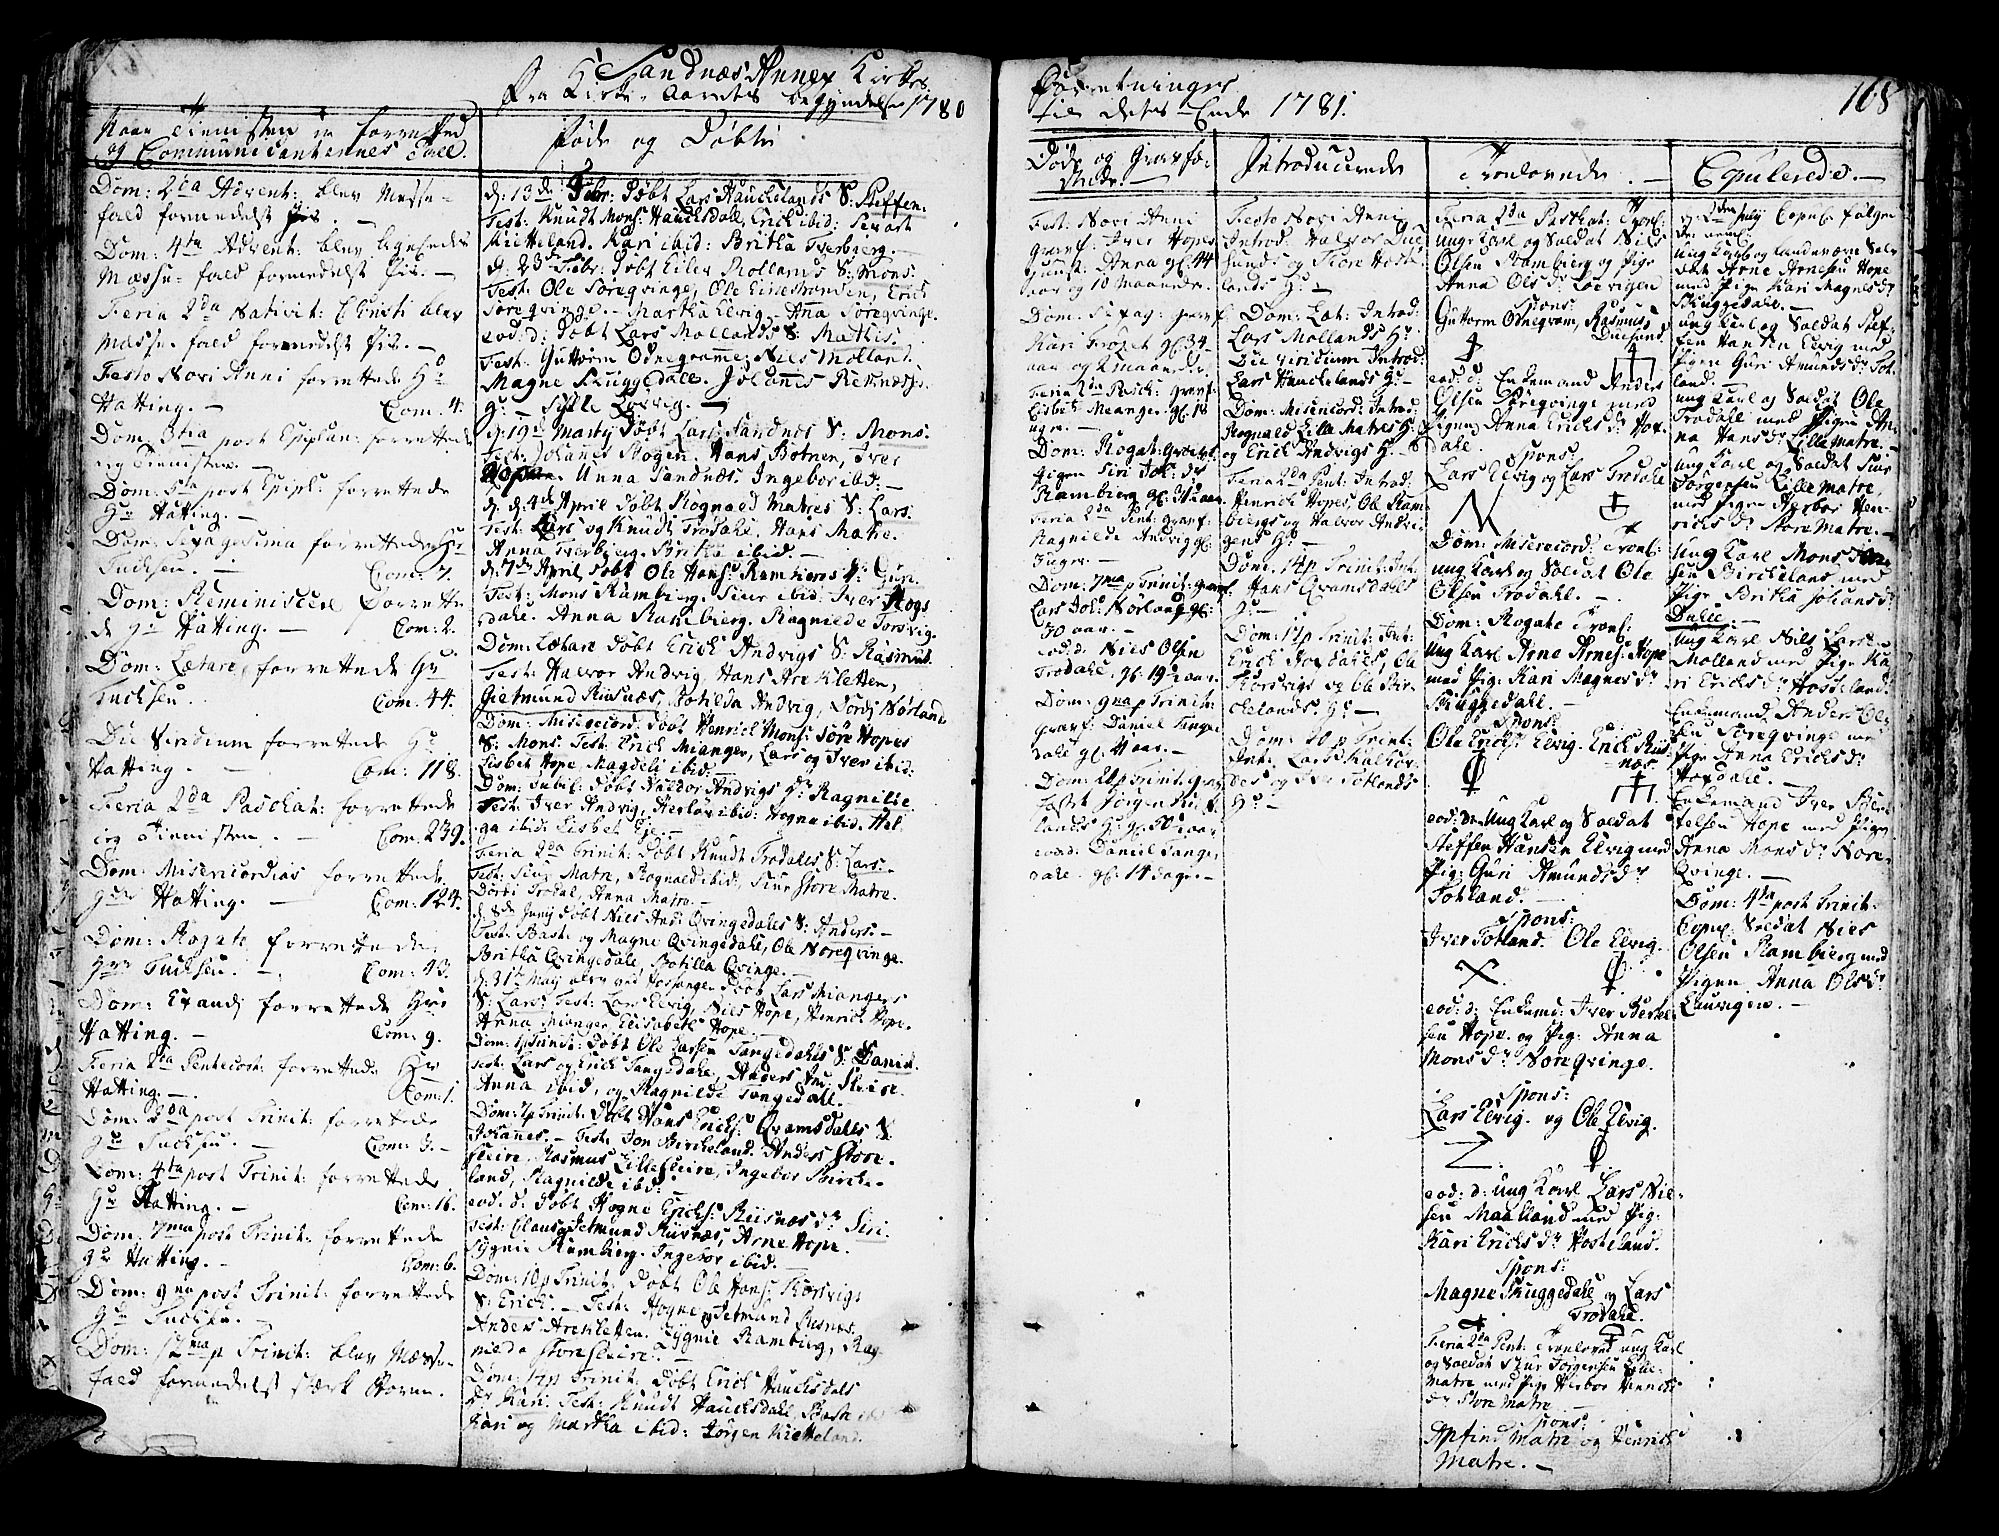 Sandnæs Annex Kirkes
Fra Kirke-Aarets begyndelse 1780
Naar Tienisten er forrettet
og Communicanternes Tall.
Føde og Døbte
Dom: 2da Advent: blev Messe-
fald formedelst Jis. —
Dom: 4ta Advent: blev ligeledes
Mæsse-fald formedelst Jis. —
Feria 2da Nativit: Christi blev
Mæsse-fald formedelst Jis. —
Festo Novi Anni forrettede Hr
Hatting. — Com: 4.
Dom: 3tia post Epiphan: forrettede
jeg Tienisten. —
Dom: 5ta post Epiph: forrettede
Hr Hatting. —
Dom: Sexagesima forrettede Hr
Tuchsen. — Com: 7.
Dom: Reminiscere forrette-
de Hr Hatting. — Com: 2.
Dom: Lætare forrettede Hr
Tuchsen. Com: 44.
Die Viridium forrettede Hr
Hatting. — Com: 118.
Feria 2da Paschat: forrettede
jeg Tienisten. — Com: 239.
Dom: Misericordias forrettede
Hr Hatting. — Com: 124.
Dom: Rogate forrettede
Hr Tuchsen. — Com: 43.
Dom: Exaudj forrettede Hr
Hatting. — Com: 9.
Feria 2da Pentecost: forrettede Hr
Hatting. — Com: 1.
Dom: 2da post Trinit: forrettede
Hr Tuchsen. — Com: 3. —
Dom: 4ta post Trinit: forrettede
Hr Hatting. — Com: 16.
Dom: 7ma post Trinit: forrettede
Hr Hatting. — Com: 6.
Dom: 9na post Trinit: forrettede
Hr Tuchsen. —
Dom: 12ma p Trinit: blev Mæsse-
fald formedelst stærk Storm.
d: 13de Febr: Døbt Lars Hauckelands S: Steffen.
Test: Knudt Mons: Hauchsdall, Erich ibid: Sivart
Kietteland. Kari ibid: Britha Tverberg. —
d: 23de Febr: Døbt Eiler Rollams S: Mons.
Test: Ole Søreqvinge, Ole Einestranden, Erich
Søreqvinge. — Martha Elvig. Ana Søreqvinge.
eod: d: døbt Lars Mollands S: Mathis.
Test: Guttorm Odnegrame: Niels Molland.
Magne Skuggedall. Johanes
d: 19de Martj døbt Lars Sandnes S: Mons.
Test: Johanes Skogen. Hans Botnen, Iver
Anna Sandnæs. Ingebor ibid: —
d: 4de April døbt Rognald Matres S: Lars.
Test: Lars og Knudt Trodahl. Hans Matre.
Anna Tverberg. Britha ibid: —
d: 7de April døbt Ole Hans: Rambiergs dr Guri.
Test: Mons Ramberg, Siur ibid: Iver Skogs
dahl. Anna Ramberg. Ragnilde Torsvig.
Dom: Lætare døbt Erich Andvigs S: Rasmus.
Test: Halvor Andvig, Hans Arekletten,
Gietmund Riisnæs, Botilda Andvig, Dordj Nørland.
Dom: Misericord: døbt Henrich Mons: Søre Hopes
S: Mons. Test: Erich Mianger, Lars og Iver ibid:
Lisbet Hope, Magdeli ibid:
Dom: Jubil: døbt Haldor Andvigs dr Ragnilde.
Test: Iver Andvig, Herlov ibid: Hogne ibid: Hel-
ga ibid: Lisbet Eje. —
Feria 2da Trinit: døbt Knudt Trodales S: Lars.
Test: Siur Matre, Rognald ibid: Siur Store Matre.
Dordi Trodal, Anna Matre. —
d: 8de Junij døbt Niels And: Qvingedals S: Anders. —
Test: Bast: og Magne Qvingedahl, Ole Nøreqvinge.
Britha Qvingedahl, Botilla Qvinge. —
d: 31te Maij blev ved Hosanger døbt Lars Miangers
S: Lars: Test: Lars Elvig, Niels Hope, Henrich Hope.
Anna Mianger. Elisabeth Hope. —
Dom: Trinit: døbt Ole Larsen Tangedals S: Daniel.
Test: Lars og Erich Tangedahl, Anders
Anna ibid, og Ragnilde Tangedall. —
Dom: 7 p Trinit: døbt Hans Erichs: Qvamsdalls S:
Johanes. — Test: Jon Birckeland. Anders Store-
Sleire, Rasmus Lille Sleire, Ingebor Bircke-
land, Ragnilde ibid:
eod: d: døbt Hogne Erichs: Riisnæs dr Siri.
Test: Claus, Jetmund Riisnæs, Arne Hope.
Sygnie Ramberg. Ingebor ibid: —
Dom: 10 p Trinit: døbt Ole Hans: Korsvigs
S: Erich. — Test: Hogne, Jetmund Riisnæs.
Anders Arekletten. Sygnie Ramberg, Rag-
nilda Storesleire. —
Dom: 14 p Trinit: døbt Erich Hauchsdals
dr Kari. Test: Knudt Hauchsdahl, Bast:
Kari og Martha ibid: Jørgen Kietteland
Forretninger
til dets Ende 1781.
168
Døde og Gravfæ-
stede. —
Introducerede
Trolovede. —
Copulerede. —
Fest: Novi Anni
gravf: Iver Hopes
Anna gl: 44
aar og 10 maaneder.
Dom: Sexag: gravf:
Kari Trodet gl: 34
Feria 2da Pasch: gravf:
Lisbeth Mianger. gl: 18
uger. —
Dom: Rogat: gravf:
Pigen Siri Joh: dr
Ramberg gl: 21 aar.
Feria 2da Pent: gravf:
Ragnilde Andvig gl:
3 uger. —
Dom: 7ma p Trinit: gravf:
Lars Joh: Nørland gl:
70 aar. —
eod: d: Niels Olsen
Trodahl. gl: 19 1/2 aar.
Dom: 9na p Trinit:
gravf: Daniel Tange-
dale gl: 4 aar. —
eod: Daniel Tange-
dale. gl: 14 dage. —
Festo Novi Anni
Introd: Halvor Due-
sunds og Tore Hoste-
lands Hr —
Dom: Læt: Introd:
Lars Mollands Hr
Die Viridium Introd:
Lars Hauckelands Hr —
Dom: Misericord: Introd:
Rognald Lille Matres Hr
og Erich Andvigs Hr —
Feria 2da Pent: Introd:
Henrich Hopes, Ole Ram-
biergs og Halvor Andvi-
gens Hr —
Dom: 14 p Trinit: Int:
Hans Qvamsdales
Hr —
Dom: 17 p Trinit: Int:
Erich Hoxdales, Ole
Korsvigs og Ole Bir-
ckelands Hr —
Dom: 20 p Trinit:
Int: Lars
og Iver Totlands
Hr —
Feria 2da Paschat: Trol:
ung Karl og Soldat Niels
Olsen Rambierg og Pige
Anna Ols dr Loevigen
Spons:
Guttorm Odnegram, Rasmus
Duesund
eod: d: Enkemand Anders
Olsen Søreqvinge med
Pigen Anna Erichs dr Hox-
dale.
Spons:
Lars Elvig og Lars Trodahl
N
Dom: Misericord: Trol:
ung Karl og Soldat Ole
Olsen Trodahl. —
Dom: Rogate Trol:
Ung Karl Arne Arnes: Hope
med Pig: Kari Magnes dr
Skuggedall.
Spons:
Ole Erichs: Elvig. Erich Riis-
næs.
eod: d: Ung Karl og Soldat
Steffen Hansen Elvig med
Pig: Guri Amunds dr
Totland. —
Spons:
Iver Totland. Ole Elvig.
X
eod: d: Enkemd: Iver Bertel-
sen Hope. og Pig: Anna
Mons dr Nøreqvinge.
Spons:
Lars Elvig. og Ole Elvig.
Z.
eod: d: ung Karl Lars Niel-
sen Maalland med Pig:
Kari Erichs dr Hosteland.
Spons:
Magne Skuggedahl og Lars
Trodahl.
Feria 2da Pent: Troloved ung Karl
og Soldat Siur Jørgensen Lille
Matre med Pige Herbor Henrichs
dr Store Matre —
Spons:
Apfind Matre og Henrich
Matre. —
d: 2den Julij Copul: følgen-
de neml:
Ung Karl og landeværn Sol-
dat Arne Arnesen Hope
med Pige Kari Magnes dr
Skuggedahl. —
ung Karl og Soldat Stef-
fen Hansen Elvig med
Pigen Guri Amunds dr Tot-
land. —
ung Karl og Soldat Ole
Trodahl med Pigen An-
na Hans dr Lille Matre. —
ung Karl og Soldat Siur
Jørgensen Lille Matre,
med Pigen Herbor Hen-
richs dr Store Matre. —
ung Karl Mons
Birckeland med
Pige Britha Johans dr
Dahle. —
ung Karl Niels Larsen
Molland med Pige Ka-
ri Erichs dr Hosteland.
Enkemand Anders Ol-
sen Søreqvinge med
Pige Anna Erichs dr
Hoxdahl. —
Enkemand Iver Ber-
telsen Hope med Pigen
Anna Mons dr Nøre-
Qvinge. —
Dom: 4ta post Trinit:
Copul: Soldat Niels
Olsen Rambierg med
Pigen Anna Ols dr
Lauvigen. —